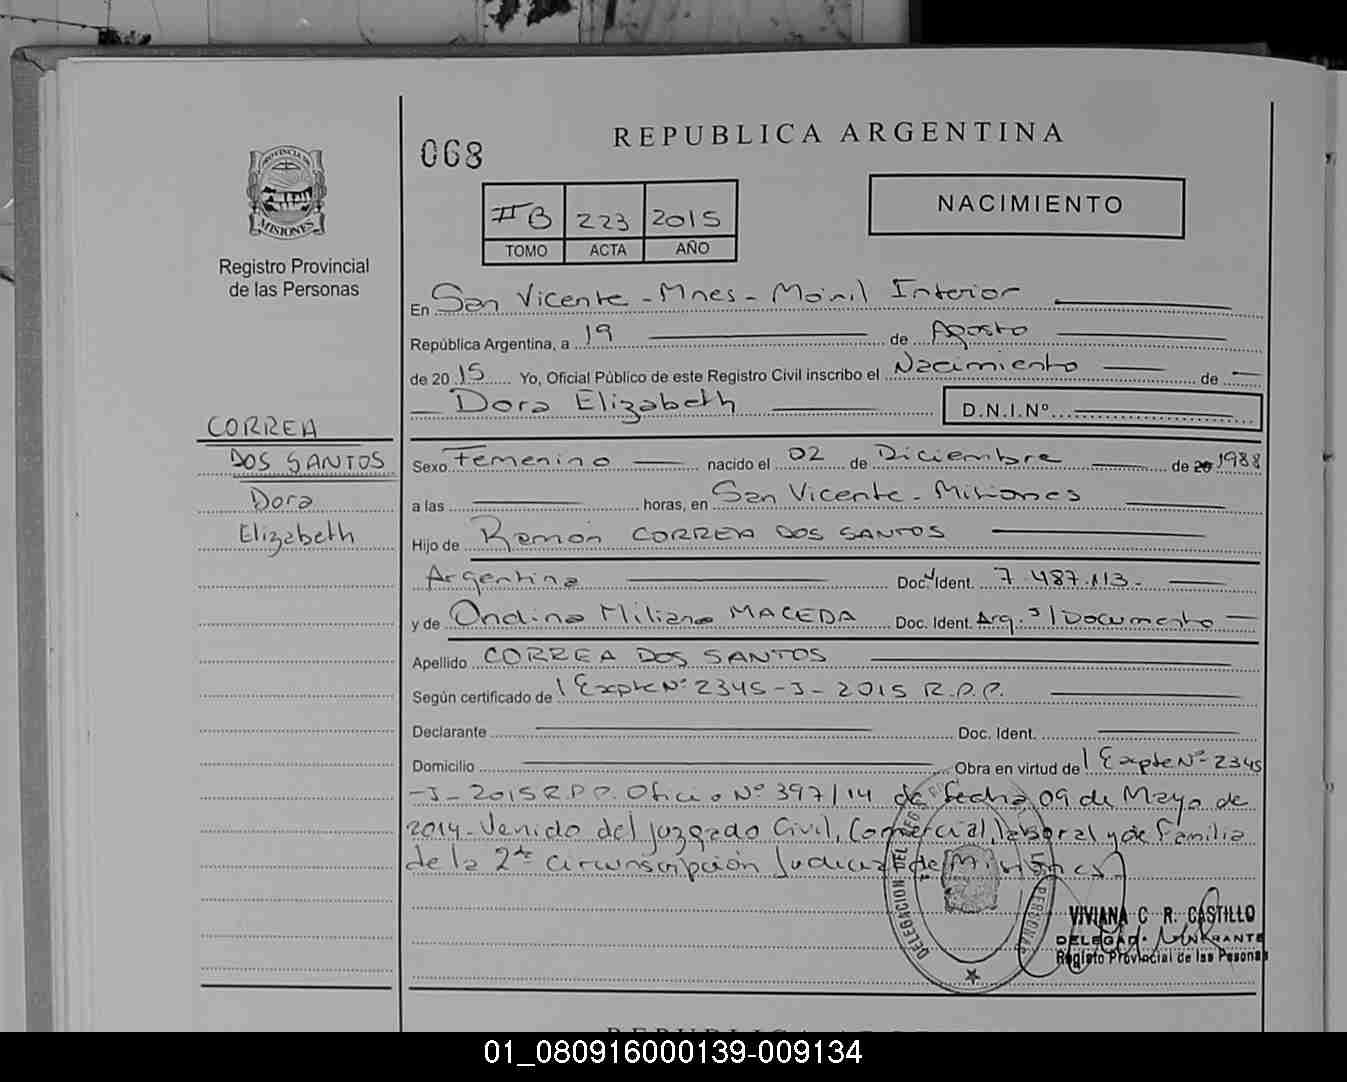 PROVINCIA DE
MISIONES
Registro Provincial
de las Personas
CORREA
DOS SANTOS
Dora
Elizabeth
068
REPUBLICA ARGENTINA
II B 223 2015
TOMO ACTA AÑO
NACIMIENTO
En San Vicente - Mnes - Móvil Interior
República Argentina, a 19 de Agosto
de 20 15 Yo, Oficial Público de este Registro Civil inscribo el Nacimiento de
Dora Elizabeth D.N.I.Nº
Sexo Femenino nacido el 02 de Diciembre de 20 1988
a las horas, en San Vicente - Misiones
Hijo de Ramón CORREA DOS SANTOS
Argentina Doc. Ident. 7.487.113-
y de Ondina Miliana MACEDA Doc. Ident. Arg. s/Documento
Apellido CORREA DOS SANTOS
Según certificado de Expte Nº 2345-J-2015 R.P.P.
Declarante Doc. Ident.
Domicilio Obra en virtud de Expte Nº 2345
-J-2015 R.P.P. Oficio Nº 397/14 de fecha 09 de Mayo de
2014- Venido del Juzgado Civil, Comercial, laboral y de Familia
de la 2da circunscripción Judicial de Misiones.
DELEGACION DEL
VIVIANA C R. CASTILLO
Registro Provincial de las Personas
01_080916000139-009134